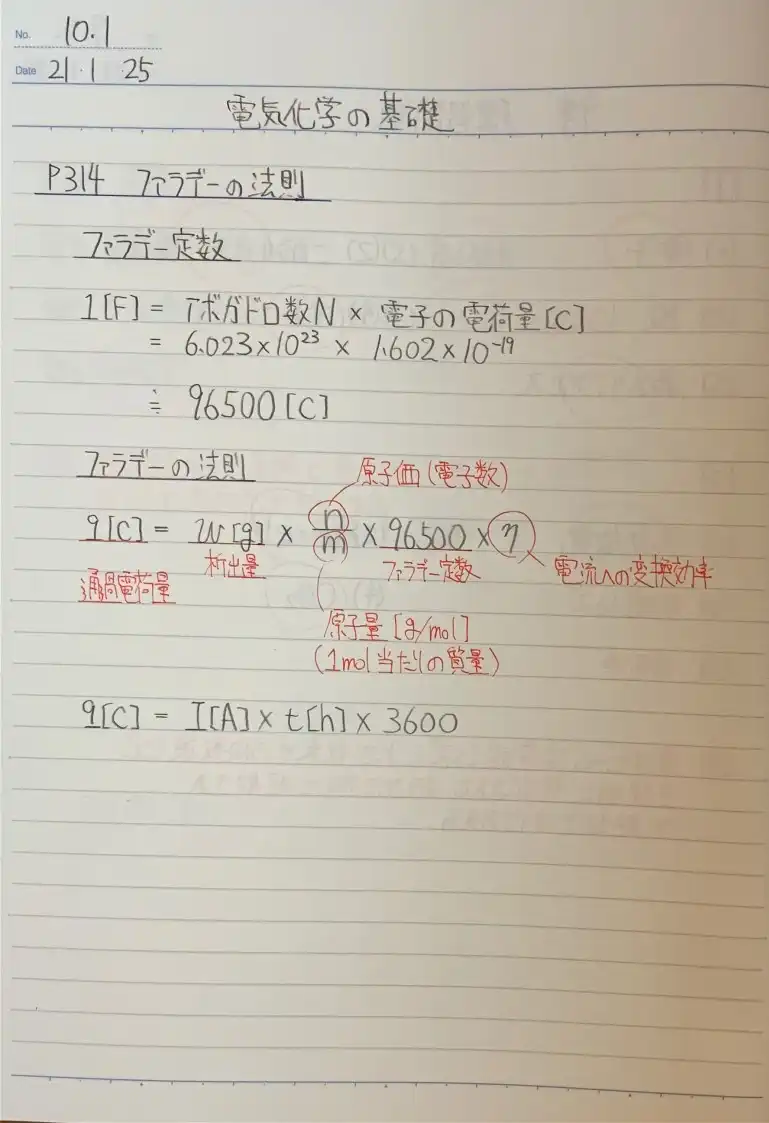 No. 10.1
Date 21・1・25
電気化学の基礎
P314 ファラデーの法則
ファラデー定数
1[F] = アボガドロ数N × 電子の電荷量[C]
= 6.023×10²³ × 1.602×10⁻¹⁹
≒ 96500[C]
ファラデーの法則
原子価(電子数)
q[C] = w[g] × n/m × 96500 × η
析出量 ファラデー定数 電流への変換効率
通過電荷量
原子量[g/mol]
(1mol当たりの質量)
q[C] = I[A] × t[h] × 3600